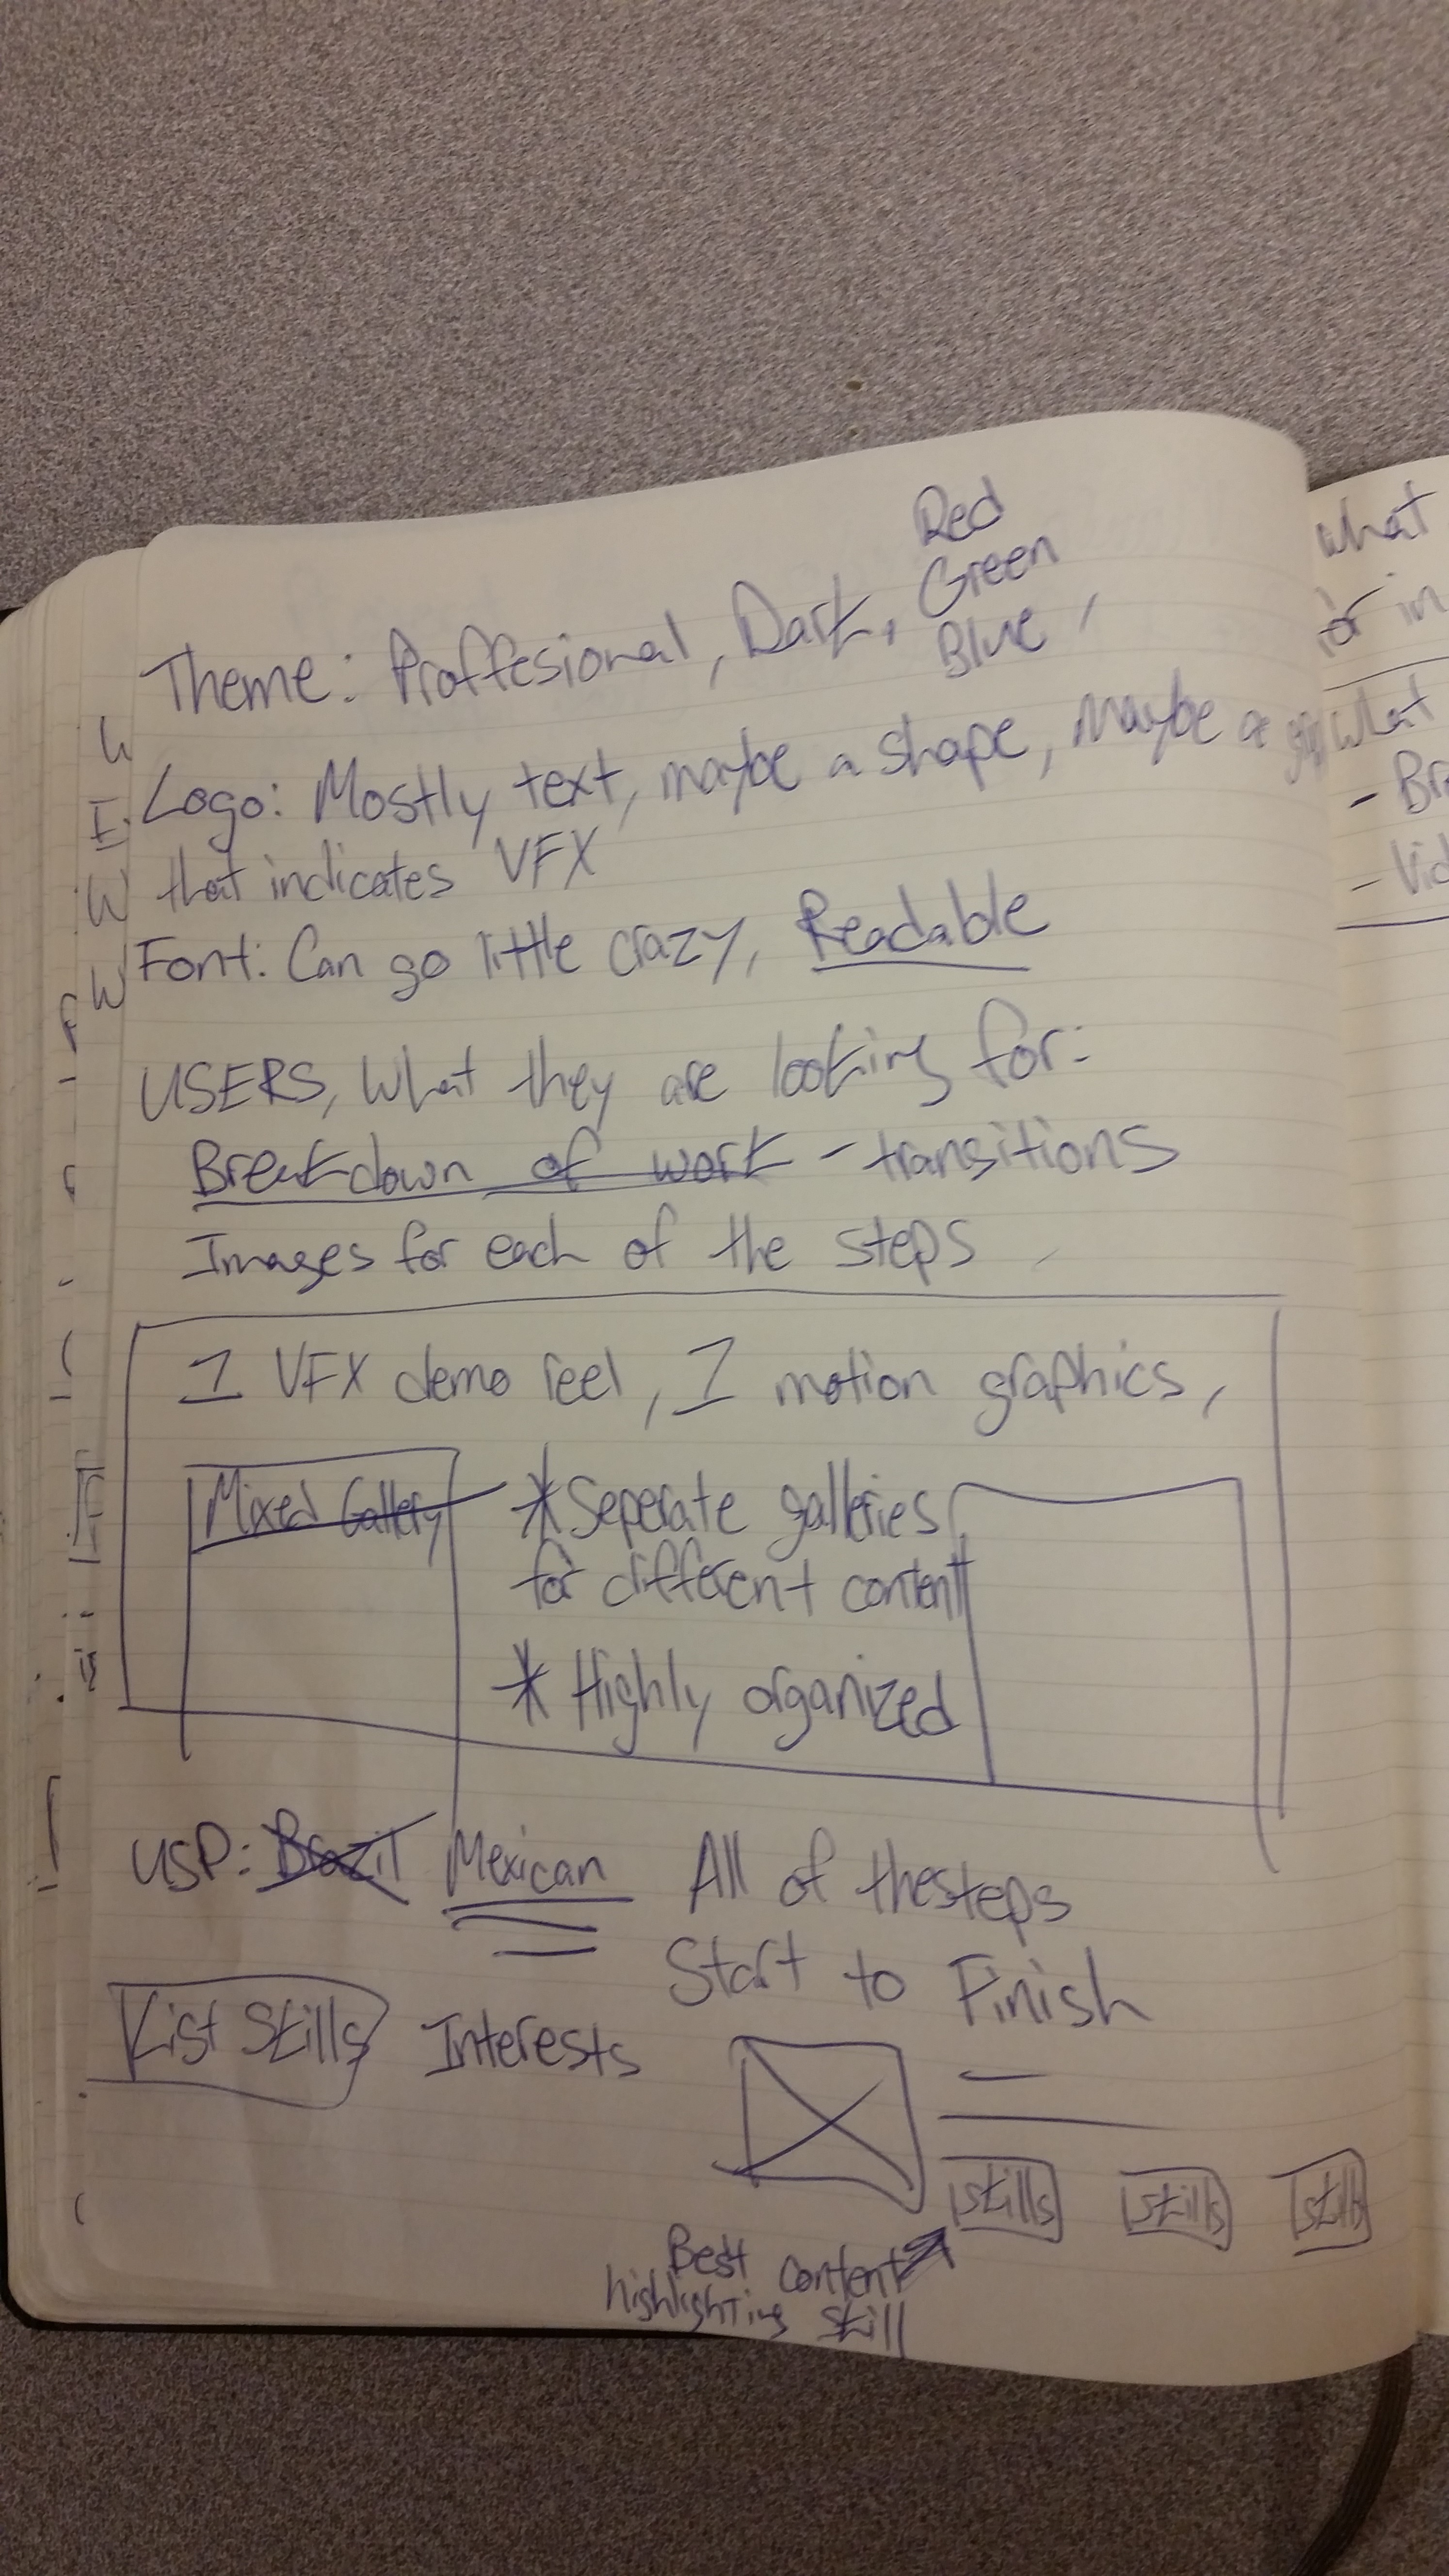 Red
Theme: Proffesional, Dark, Green
Blue,
Logo: Mostly text, maybe a shape, maybe a
that indicates VFX
Font: Can go little crazy, Readable
USERS, What they are looking for:
Breakdown of work - transitions
Images for each of the steps
1 VFX demo reel, 1 motion graphics,
Mixed Gallery * Seperate galleries
for different content
* Highly organized
USP: Brazil Mexican All of thesteps
Start to Finish
List Skills Interests
skills skills skills
Best content
highlighting skill
what
or in
what
- Br
- Vid